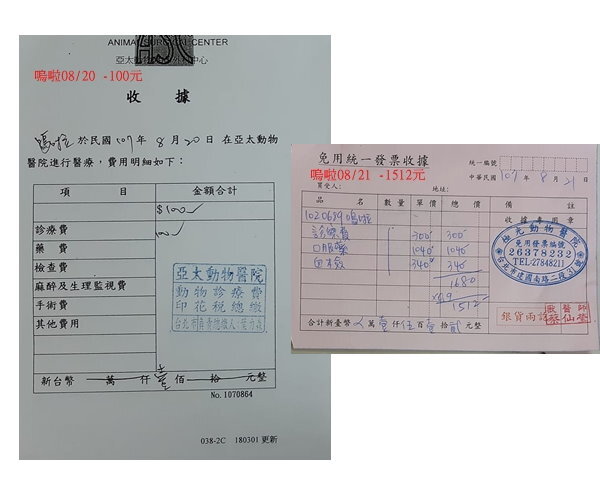 ANIMAL SURGICAL CENTER
嗚啦08/20 -100元
收據
於民國107年8月20日在亞太動物
醫院進行醫療，費用明細如下：
項 目 金額合計
$100
診療費 100
藥 費
檢查費
麻醉及生理監視費
手術費
其他費用
亞太動物醫院
動物診療費
印花稅總繳
新台幣 萬 仟 壹 佰 拾 元整
No.1070864
038-2C 180301更新
免用統一發票收據
統一編號
嗚啦08/21 -1512元
中華民國107年8月21日
買受人： 地址：
品名 數量 單價 總價 備註
收據專用章
診療費 300 300
口服藥 1040 1040
340 340
1680
×0.9
1512
極光動物醫院
免用發票編號
26378232
TEL:27848211
台北市建國南路二段
銀貨兩訖
獸醫師
合計新臺幣 萬壹仟伍佰壹拾貳元整